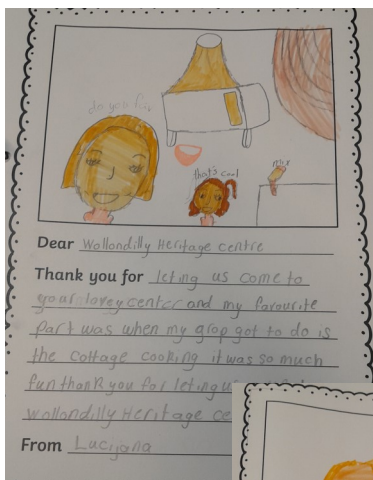 do you
that's cool
mix
Dear Wollondilly Heritage centre
Thank you for leting us come to
your lovey center and my favourite
part was when my grop got to do is
the cottage cooking it was so much
fun thank you for leting
wollondilly Heritage ce
From Lucijana